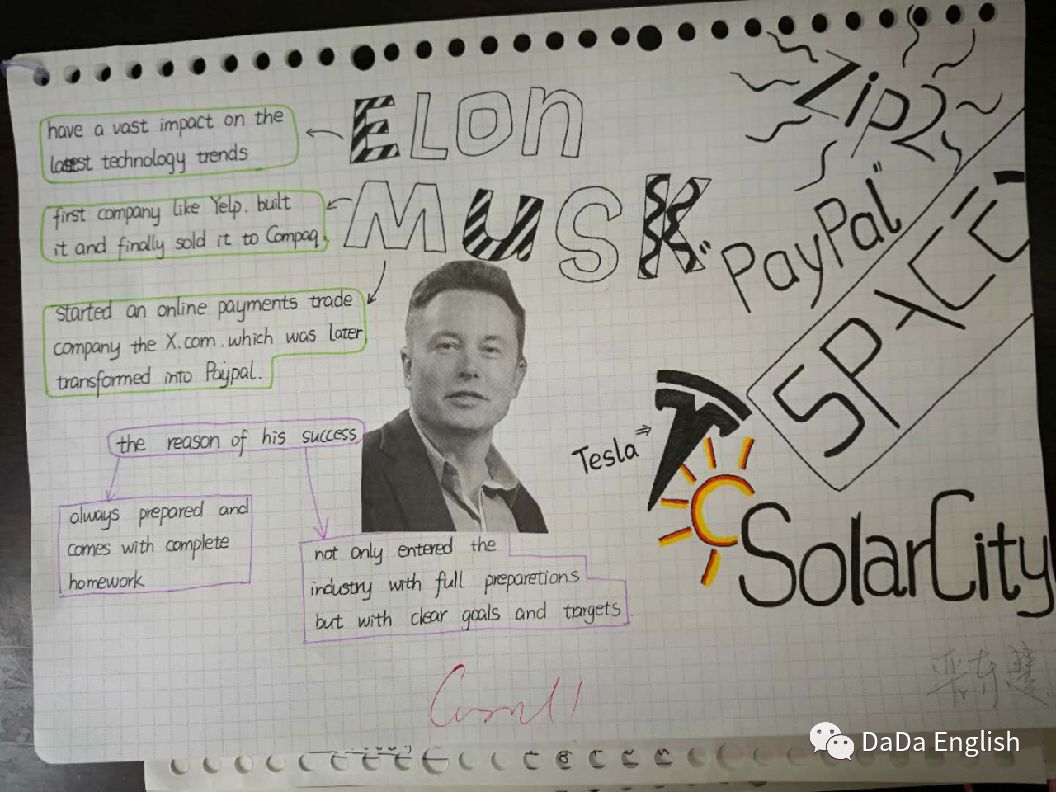 ELON
MUSK
have a vast impact on the
latest technology trends
first company like Yelp. built
it and finally sold it to Compaq.
started an online payments trade
company the X.com.which was later
transformed into Paypal.
the reason of his success
always prepared and
comes with complete
homework
not only entered the
industry with full preparetions
but with clear goals and targets.
Zip2
"PayPal"
SPACE
Tesla
SolarCity
DaDa English